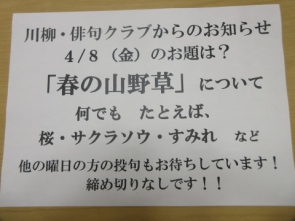 川柳・俳句クラブからのお知らせ
4/8（金）のお題は？
「春の山野草」について
何でも　たとえば、
桜・サクラソウ・すみれ　など
他の曜日の方の投句もお待ちしています！
締め切りなしです！！